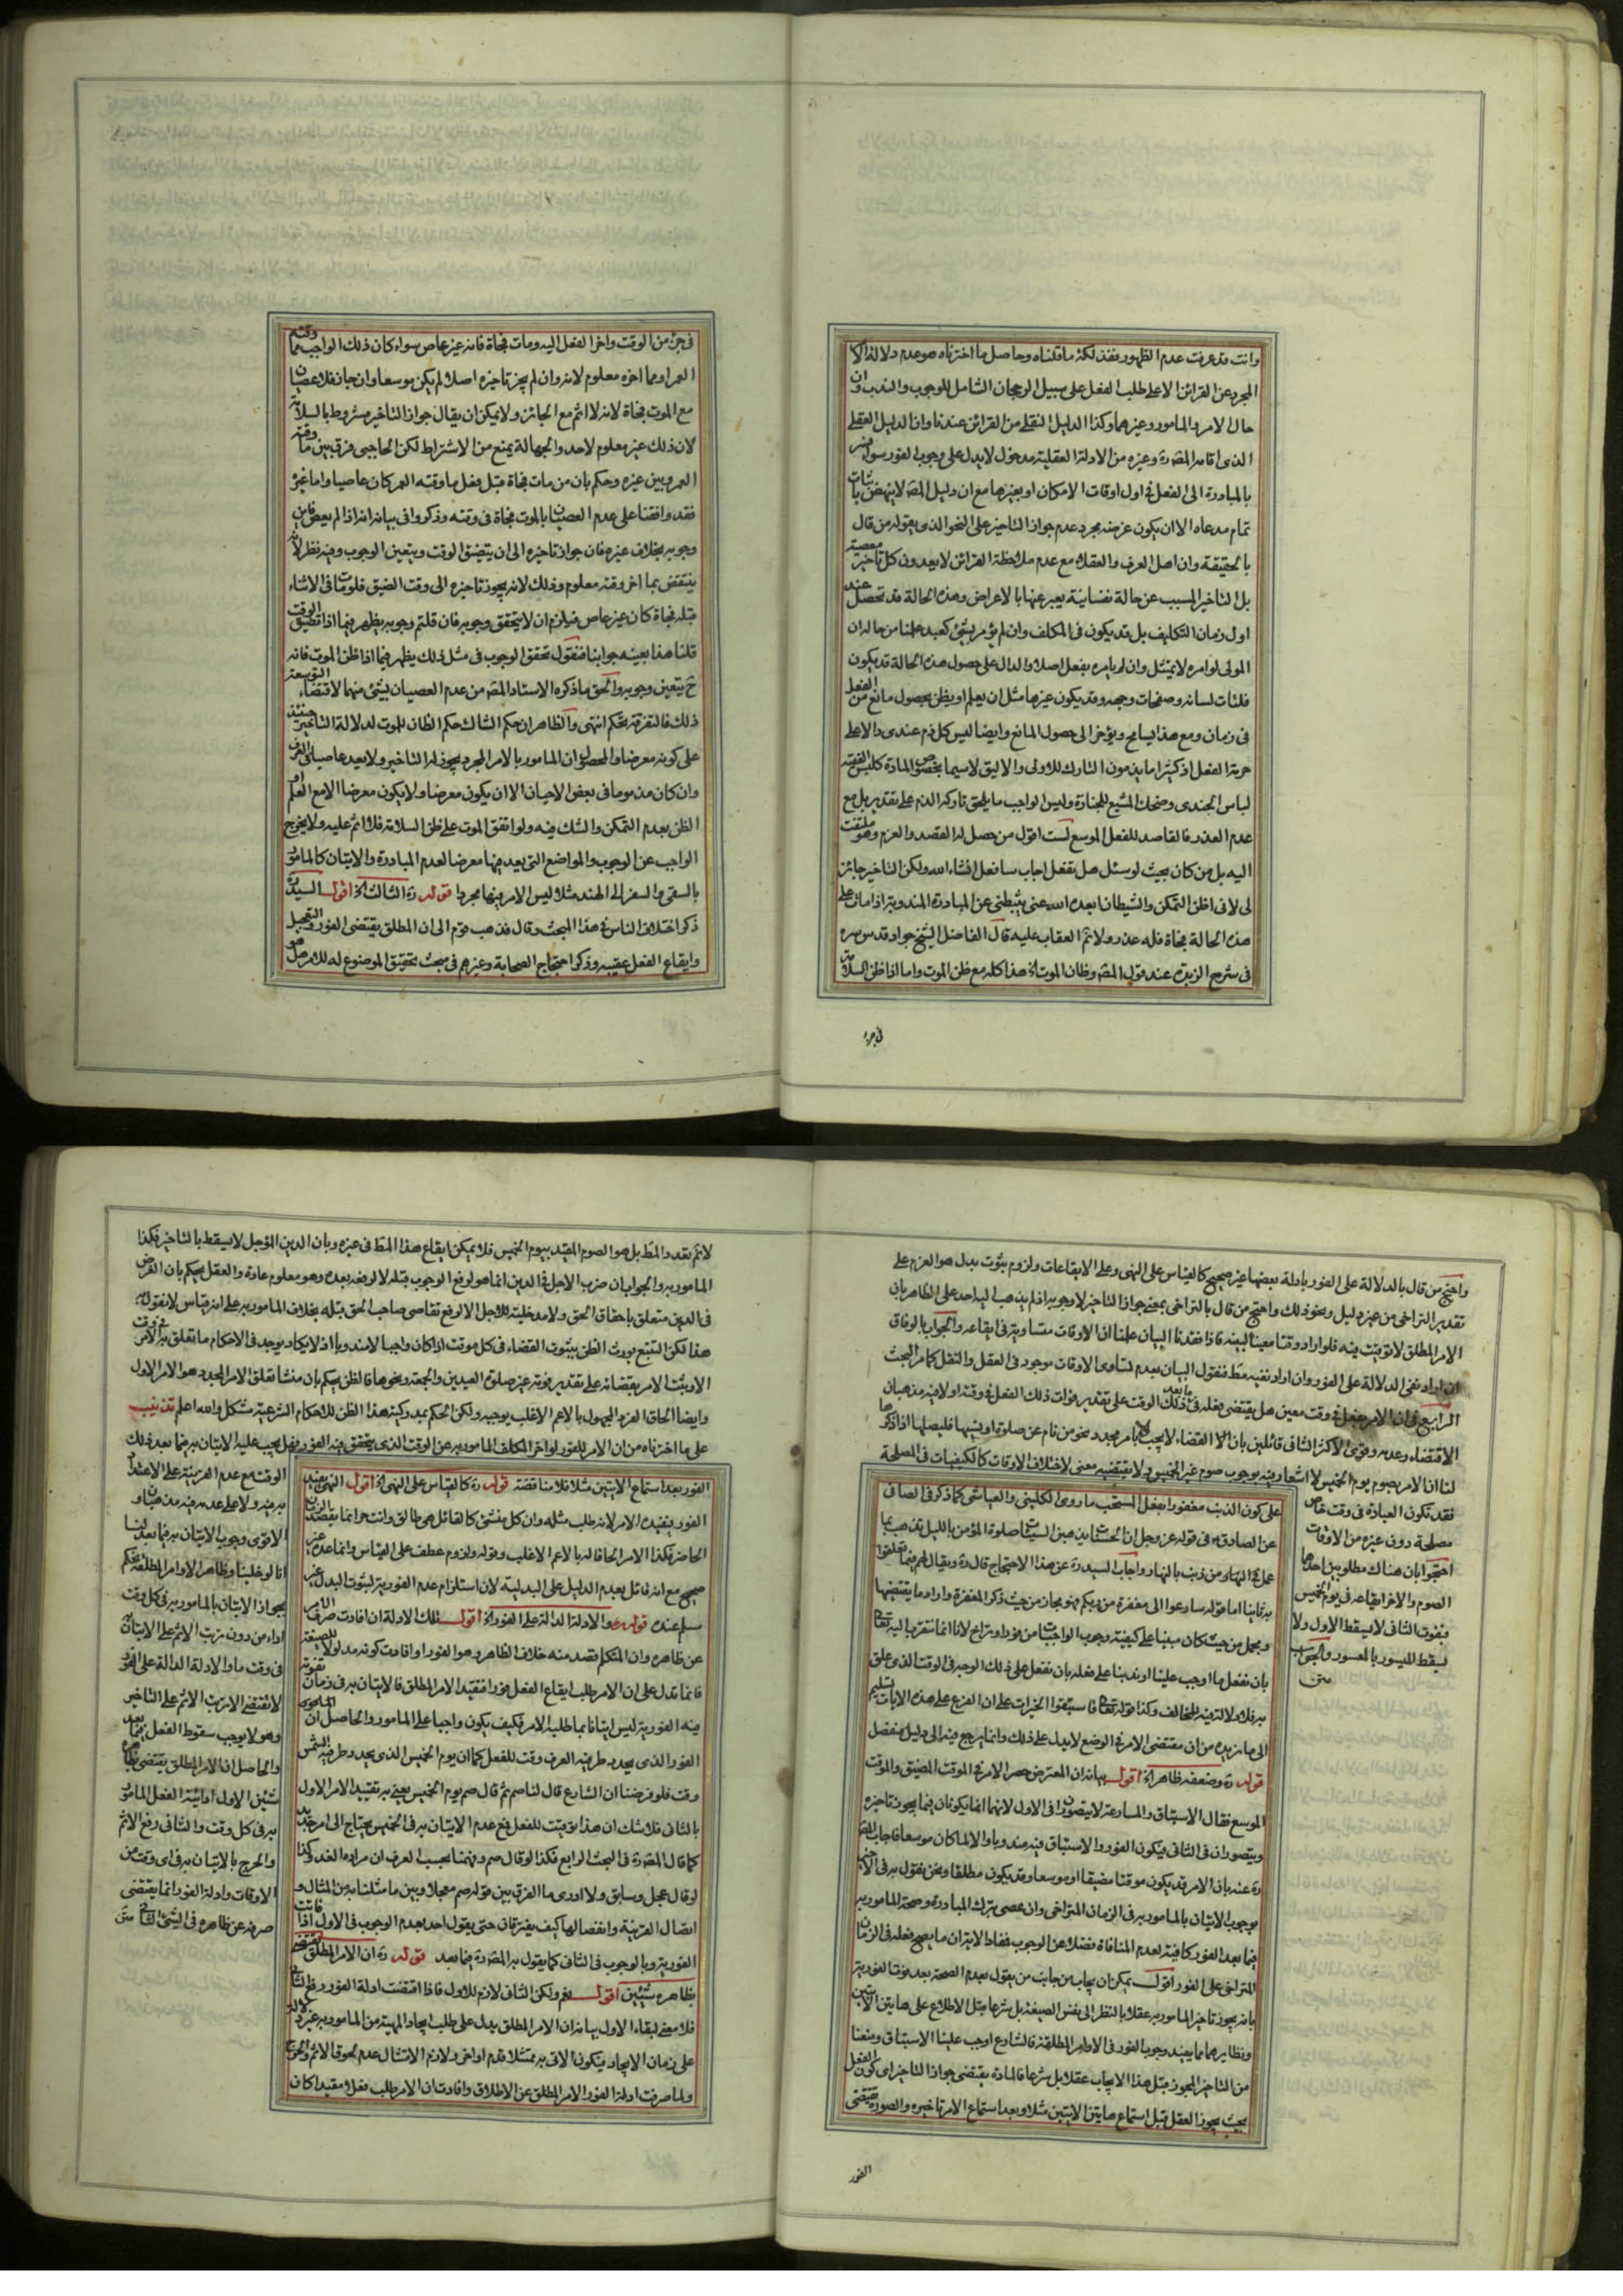 وانت قد عرفت عدم الظهور فقد لكثرة ما قلناه وحاصل ما اخترناه هو عدم دلالة الا
المجرد عن القرائن الا على طلب الفعل على سبيل الرجحان الشامل للوجوب والندب وان
حال الامر والمامور وغيرهما وكذا الدليل النقلي من القرائن عندنا وان الدليل العقلي
الذي اقامه المصره وغيره من الادلة العقلية مدخول لا يدل على وجوب الفور سوا فسر
بالمبادرة الى الفعل في اول اوقات الامكان او بغيرها مع ان دليل المصه لا ينهض باثبات
تمام مدعاه الا ان يكون غرضه مجرد عدم جواز التاخير على النحو الذي يقوله من قال
بالحقيقة وان اهل العرف والعقلاء مع عدم ملاحظة القرائن لا يعدون كل تاخير معصية
بل التاخير المسبب عن حالة نفسانية يعبر عنها بالاعراض وهذه الحالة قد تحصل عند
اول زمان التكليف بل قد يكون في المكلف وان لم يؤمر بشئ كعبد علمنا من حاله ان
المولى لو امره لا يمتثل وان لم يامره بفعل اصلا والدال على حصول هذه الحالة قد يكون
فلتات لسانه وصفحات وجهه وقد يكون غيرها مثل ان يعلم او يظن بحصول مانع من الفعل
في زمان ومع هذا يسامح ويؤخر الى حصول المانع وايضا ليس كل ذم عندي دالا على
حرمة الفعل اذ كثيرا ما يذمون التارك للاولى والاليق لاسيما بخصوص المادة كلبس الفقيه
لباس الجندي وضحك المشيع للجنازة وليس الواجب ما يلحق تاركه الذم على تقدير بل مع
عدم العذر فالقاصد للفعل الموسع لست اقول من حصل له القصد والعزم وهو ملتفت
اليه بل من كان بحيث لو سئل هل تفعل اجاب سافعل انشاء الله ولكن التاخير جائز
لى لانى اظن التمكن والشيطان ابعده الله عنى يثبطنى عن المبادرة المندوبة اذا مات على
هذه الحالة فجاة فله عذر ولا ثم العقاب عليه قال الفاضل الشيخ جواد قدس سره
في شرح الزبدة عند قول المصه وظان الموت اه هذا كله مع ظن الموت واما اذا ظن السلامة
في جزء
في جزء من الوقت واخر الفعل اليه ومات فجاة فانه غير عاص سواء كان ذلك الواجب مما وقته
العمر او مما اخره معلوم لانه وان لم يجز تاخيره اصلا لم يكن موسعا وان جاز فلا عصيان
مع الموت فجاة لانه لا اثم مع الجائز ولا يمكن ان يقال جواز التاخير مشروط بالسلامة
لان ذلك غير معلوم لاحد والجهالة يمنع من الاشتراط لكن الحاجبي فرق بين ما وقته
العمر وبين غيره وحكم بان من مات فجاة قبل فعل ما وقته العمر كان عاصيا واما غيره
فقد وافقنا على عدم العصيان بالموت فجاة في وقته وذكروا في بيانه انه اذا لم يعص فاين
وجوبه بخلاف غيره فان جواز تاخيره الى ان يتضيق الوقت ويتعين الوجوب وفيه نظر لانه
ينتقض بما اخر وقته معلوم وذلك لانه يجوز تاخيره الى وقت الضيق فلو مات في الاثناء
قبله فجاة كان غير عاص فيلزم ان لا يتحقق وجوبه فان قلتم وجوبه يظهر فيما اذا تضيق الوقت
قلنا هذا بعينه جوابنا فنقول تحقق الوجوب في مثل ذلك يظهر فيما اذا ظن الموت فانه
ح يتعين وجوبه والحق ما ذكره الاستاد المصه من عدم العصيان بشئ منهما لاقتضاء التوسعة
ذلك فالتفرقة تحكم انتهى والظاهر ان حكم الثالث حكم الظان للموت لدلالة التاخير حينئذ
على كونه معرضا والمحصل ان المامور بالامر المجرد يجوز له التاخير ولا يعد عاصيا في العرف
وان كان مذموما في بعض الاحيان الا ان يكون معرضا ولا يكون معرضا الا مع العلم او
الظن بعدم التمكن والشك فيه ولو اتفق الموت على ظن السلامة فلا اثم عليه ولا يخرج
الواجب عن الوجوب والمواضع التي يعد فيها معرضا لعدم المبادرة والاتيان كالمامور
بالسقي والسفر الى الهند مثلا ليس الامر فيها مجردا قوله ره الثالث اه اقول السيد ره
ذكر اختلاف الناس في هذا المبحث وقال فذهب قوم الى ان المطلق يقتضى الفور والتعجيل
وايقاع الفعل عقيبه وذكر احتجاج الصحابة وغيرهم في مبحث تحقيق الموضوع له للامر هل هو
واحتج من قال بالدلالة على الفور بادلة بعضها غير صحيح كالقياس على النهى وعلى الايقاعات ولزوم ثبوت بدل هو العزم على
تقدير التراخى من غير دليل ونحو ذلك واحتج من قال بالتراخى بمعنى جواز التاخير لا وجوبه اذ لم يذهب اليه احد على الظاهر بان
الامر المطلق لا توقيت فيه فلو اراد وقتا معينا لبينه فاذا فقدنا البيان علمنا ان الاوقات متساوية في ايقاعه والجواب بالوفاق
ان اراد نفى الدلالة على الفور وان اراد نفيه مط فنقول البيان بعدم تساوى الاوقات موجود في العقل والنقل كما مر البحث
الرابع في ان الامر بفعل في وقت معين هل يقتضى فعله فيما بعد ذلك الوقت على تقدير فوات ذلك الفعل في وقته او لا فيه مذهبان
الاقتضاء وعدمه وقوى الاكثر الثاني قائلين بان القضاء لا يجب الا بامر مجدد نحو من نام عن صلوة او نسيها فليصلها اذا ذكرها
لنا ان الامر بصوم يوم الخميس لا اشعار فيه بوجوب صوم غير الخميس ولا يقتضيه معنى لاختلاف الاوقات كالكيفيات في المصلحة
فقد تكون العبادة في وقت خاص
مصلحة دون غيره من الاوقات
احتجوا بان هناك مطلوبين احدهما
الصوم والاخر ايقاعه في يوم الخميس
وبفوت الثاني لا يسقط الاول ولا
يسقط الميسور بالمعسور والجواب
متن
على كون الذنب مغفورا بفعل المستحب ما روى الكليني والعياشي كما ذكر في الصافي
عن الصادق ع في قوله عز وجل ان الحسنات يذهبن السيئات صلوة المؤمن بالليل تذهب بما
عمل في النهار من ذنب بالنهار واجاب السيد ره عن هذا الاحتجاج قال ره ويقال لهم فيما تعلقوا
به ثانيا اما قوله سارعوا الى مغفرة من ربكم فهو مجاز من حيث ذكر المغفرة واراد ما يقتضيها
ومجمل من حيث كان مبنيا على كيفية وجوب الواجبات من فور او تراخ لانا انما نتقرب اليه تعالى
بان نفعل ما اوجب علينا او ندبنا على فعله بان نفعل على ذلك الوجه في الوقت الذي علق
به فلا دلالة فيه للمخالف وكذا قوله تعالى فاستبقوا الخيرات على ان الفزع على هذه الايات تسليم
الى ما نريده من ان مقتضى الامر في الوضع لا يدل على ذلك وانما يرجع فيه الى دليل منفصل
قوله ره وضعفه ظاهر اه اقول بيانه ان المعترض حصر الامر في الموقت المضيق والموقت
الموسع فقال الاستباق والمسارعة لا يتصوران في الاول لانهما انما يكونان فيما يجوز تاخيره
ويتصوران في الثاني فيكون الفور والاستباق فيه مندوبا والا لما كان موسعا فاجاب المصه
ره عنه بان الامر قد يكون موقتا مضيقا او موسعا وقد يكون مطلقا ونحن نقول به في الاخير
بوجوب الاتيان بالمامور به في الزمان المتراخى وان عصى بترك المبادرة وصحة المامور به
فيما بعد الفور كافية لعدم المنافاة فضلا عن الوجوب فنادى الا بتران ما يصح فعله في الزمان
المتراخى على الفور اقول يمكن ان يجاب من جانب من يقول بعدم الصحة بعد فوت الفورية
بانه يجوز تاخير المامور به عقلا بالنظر الى نفس الصيغة بل شرعا قبل الاطلاع على هاتين الايتين
ونظايرهما مما يفيد وجوب الفور في الاوامر المطلقة فالشارع اوجب علينا الاستباق ومنعنا
من التاخير المجوز قبل هذا الايجاب عقلا بل شرعا فالمادة يقتضى جواز التاخير اى كون الفعل
بحيث يجوز العقل قبل استماع هاتين الايتين مثلا وبعد استماع الامر تاخيره والصورة يقتضى
الفور
لا ثم تعدد المط بل هو الصوم المقيد بيوم الخميس فلا يمكن ايقاع هذا المط في غيره وبان الدين المؤجل لا يسقط بالتاخير فكذا
المامور به والجواب ان ضرب الاجل في الدين انما هو لرفع الوجوب قبله لا لرفعه بعده وهو معلوم عادة والعقل يحكم بان الغرض
في الدين متعلق باحقاق الحق ولا مدخلية للاجل الا لرفع تقاصى صاحب الحق قبله بخلاف المامور به على انه قياس لا نقول به
هذا لكن التتبع يورث الظن بثبوت القضاء في كل موقت اذا كان واجبا لا مندوبا اذ لا يكاد يوجد في الاحكام ما تعلق به الامر في وقت
الا وثبت الامر بقضائه على تقدير فوته غير صلوة العيدين والجمعة ونحوها فالظن يحكم بان منشا تعلق الامر المجدد هو الامر الاول
وايضا الحاق الفرد المجهول بالاعم الاغلب يوجبه ولكن الحكم بمدركية هذا الظن للاحكام الشرعية مشكل والله اعلم تذنيب
على ما اخترناه من ان الامر للفور لو اخر المكلف المامور به عن الوقت الذي يتحقق فيه الفور فهل يجب عليه الاتيان به فيما بعد ذلك
الوقت مع عدم القرينة على الاعتداد
به فيه ولا على عدمه فيه مذهبان و
الاقوى وجوب الاتيان به فيما بعد لنا
انا لو خلينا وظاهر الاوامر المطلقة نحكم
بجواز الاتيان بالمامور به في كل وقت
اداه من دون ترتب الاثم على الاتيان به
في وقت ما والادلة الدالة على الفور
لا تقتضى الا ترتب الاثم على التاخير
وهو لا يوجب سقوط الفعل فيما بعد
والحاصل ان الامر المطلق يقتضى بظاهره
شيئين الاول ادائية الفعل المامور
به في كل وقت والثاني رفع الاثم
والحرج بالاتيان به في اى وقت من
الاوقات وادلة الفور انما يقتضى
صرفه عن ظاهره في الشئ الثاني متن
الفور بعد استماع الايتين مثلا فلا مناقضة قوله ره كالقياس على النهى اه اقول النهى يفيد
الفور فيفيده الامر لانه طلب مثله وان كل منشئ كالقائل هى طالق وانت حر انما يقصد الزمان
الحاضر فكذا الامر الحاقا له بالاعم الاغلب وقوله ولزوم عطف على القياس وانما عده غير
صحيح مع انه قائل بعدم الدليل على البدلية لان استلزام عدم الفورية لثبوت البدل غير
مسلم عنده قوله ره والادلة الدالة على الفور اه اقول تلك الادلة ان افادت صرف الامر
عن ظاهره وان المتكلم قصد منه خلاف الظاهر وهو الفور او افادت كونه مدلولا للصيغة
فانما تدل على ان الامر طلب ايقاع الفعل فورا فتقيد الامر المطلق فالاتيان به في زمان تفوته
فيه الفورية ليس اتيانا بما طلبه الامر فكيف يكون واجبا على المامور والحاصل ان
الفور الذي يحدد طرفيه العرف وقت للفعل كما ان يوم الخميس الذي يحدد طرفيه الشمس
وقت فلو فرضنا ان الشارع قال لنا صم ثم قال صم يوم الخميس يعنى به تقييد الامر الاول
بالثاني فلا شك ان هذا توقيت للفعل فمع عدم الاتيان به في الخميس يحتاج الى امر جديد
كما قال المصه ره في البحث الرابع فكذا لو قال صم وفهمنا بحسب العرف ان مراده الغد وكذا
لو قال عجل وسابق ولا ادرى ما الفرق بين قوله صم معجلا وبين ما مثلنا به من المثال و
اتصال القرينة وانفصالها كيف يفترقان حتى يقول احد بعدم الوجوب في الاول اذا فاتت
الفورية وبالوجوب في الثاني كما يقول به المصه ره فيما بعد قوله ره ان الامر المطلق يقتضى
بظاهره شيئين اقول نعم ولكن الثاني لازم للاول فاذا اقتضت ادلة الفور رفع الثاني
فلا معنى لبقاء الاول بيانه ان الامر المطلق يدل على طلب ايجاد المهية من المامور به غير دلالة
على زمان الايجاد فيكون الاتى به ممتثلا قدم او اخر ولازم الامتثال عدم لحوق الاثم والحرج
ولما صرفت ادلة الفور الامر المطلق عن الاطلاق وافادت ان الامر طلب فعلا مقيدا كان